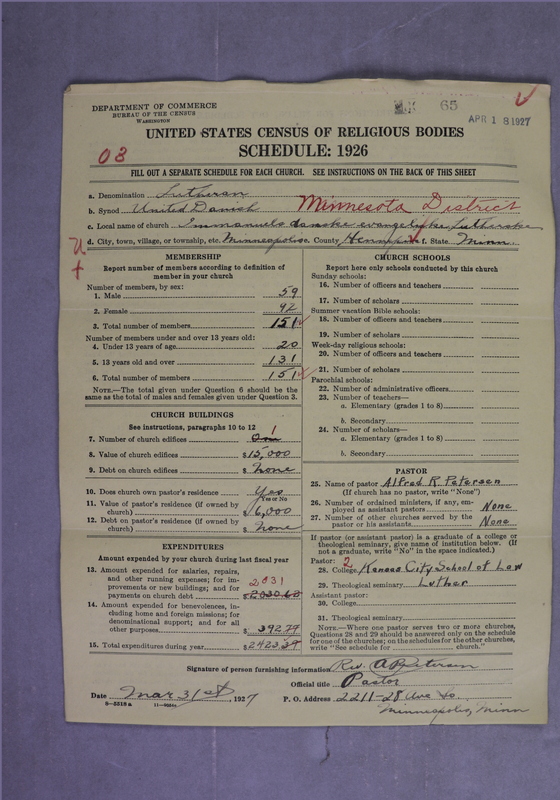 DEPARTMENT OF COMMERCE
BUREAU OF THE CENSUS
WASHINGTON
65
APR 18 1927
UNITED STATES CENSUS OF RELIGIOUS BODIES
SCHEDULE: 1926
03
FILL OUT A SEPARATE SCHEDULE FOR EACH CHURCH. SEE INSTRUCTIONS ON THE BACK OF THIS SHEET
a. Denomination Lutheran
b. Synod United Danish Minnesota District
c. Local name of church Immanuels danske evangeliske Lutherske
d. City, town, village, or township, etc. Minneapolis e. County Hennepin f. State Minn
MEMBERSHIP
Report number of members according to definition of member in your church
Number of members, by sex:
1. Male 59
2. Female 92
3. Total number of members 151
Number of members under and over 13 years old:
4. Under 13 years of age 20
5. 13 years old and over 131
6. Total number of members 151
NOTE.—The total given under Question 6 should be the
same as the total of males and females given under Question 3.
CHURCH BUILDINGS
See instructions, paragraphs 10 to 12
7. Number of church edifices One 1
8. Value of church edifices $15,000
9. Debt on church edifices $ None
10. Does church own pastor's residence Yes
Yes or No
11. Value of pastor's residence (if owned by
church) $6,000
12. Debt on pastor's residence (if owned by
church) $ None
EXPENDITURES
Amount expended by your church during last fiscal year
13. Amount expended for salaries, repairs,
and other running expenses; for im-
provements or new buildings; and for
payments on church debt 2031
14. Amount expended for benevolences, in-
cluding home and foreign missions; for
denominational support; and for all
other purposes $392.79
15. Total expenditures during year $2423.39
CHURCH SCHOOLS
Report here only schools conducted by this church
Sunday schools:
16. Number of officers and teachers
17. Number of scholars
Summer vacation Bible schools:
18. Number of officers and teachers
19. Number of scholars
Week-day religious schools:
20. Number of officers and teachers
21. Number of scholars
Parochial schools:
22. Number of administrative officers
23. Number of teachers—
a. Elementary (grades 1 to 8)
b. Secondary
24. Number of scholars—
a. Elementary (grades 1 to 8)
b. Secondary
PASTOR
25. Name of pastor Alfred R. Petersen
(If church has no pastor, write "None")
26. Number of ordained ministers, if any, em-
ployed as assistant pastors None
27. Number of other churches served by the
pastor or his assistants None
If pastor (or assistant pastor) is a graduate of a college or
theological seminary, give name of institution below. (If
not a graduate, write "No" in the space indicated.)
Pastor: 2
28. College Kansas City School of Law
29. Theological seminary Luther
Assistant pastor:
30. College
31. Theological seminary
NOTE.—Where one pastor serves two or more churches,
Questions 28 and 29 should be answered only on the schedule
for one of the churches; on the schedules for the other churches,
write "See schedule for church."
Signature of person furnishing information Rev. A R Petersen
Official title Pastor
Date Mar 31st, 1927 P. O. Address 2211-28 Ave So.
8-2318a
Minneapolis, Minn